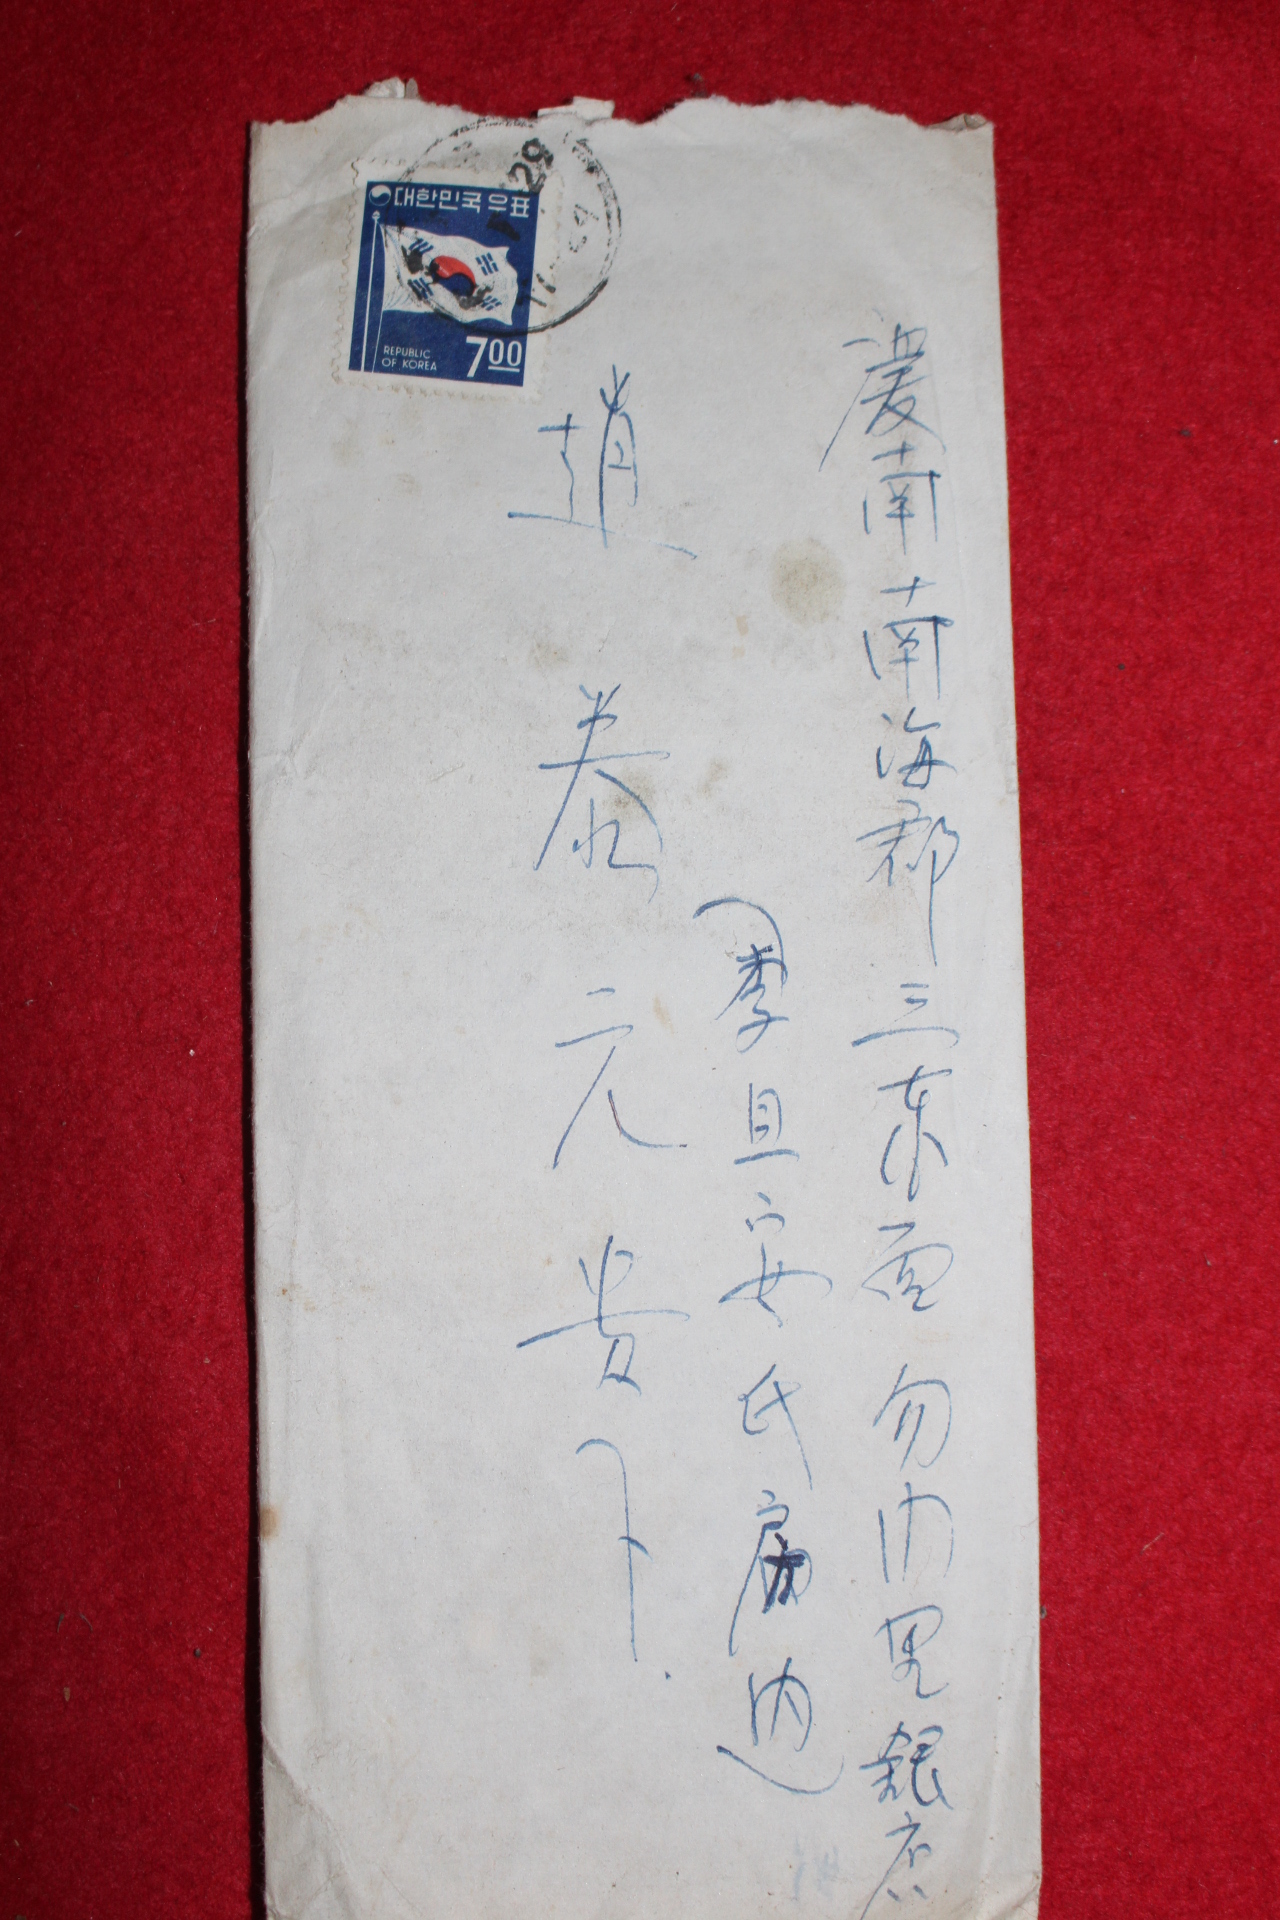 대한민국 우표
REPUBLIC
OF KOREA
700
29
慶南南海郡三東面勿巾里銀店
(季旦安氏宅内)
趙泰元貴下.